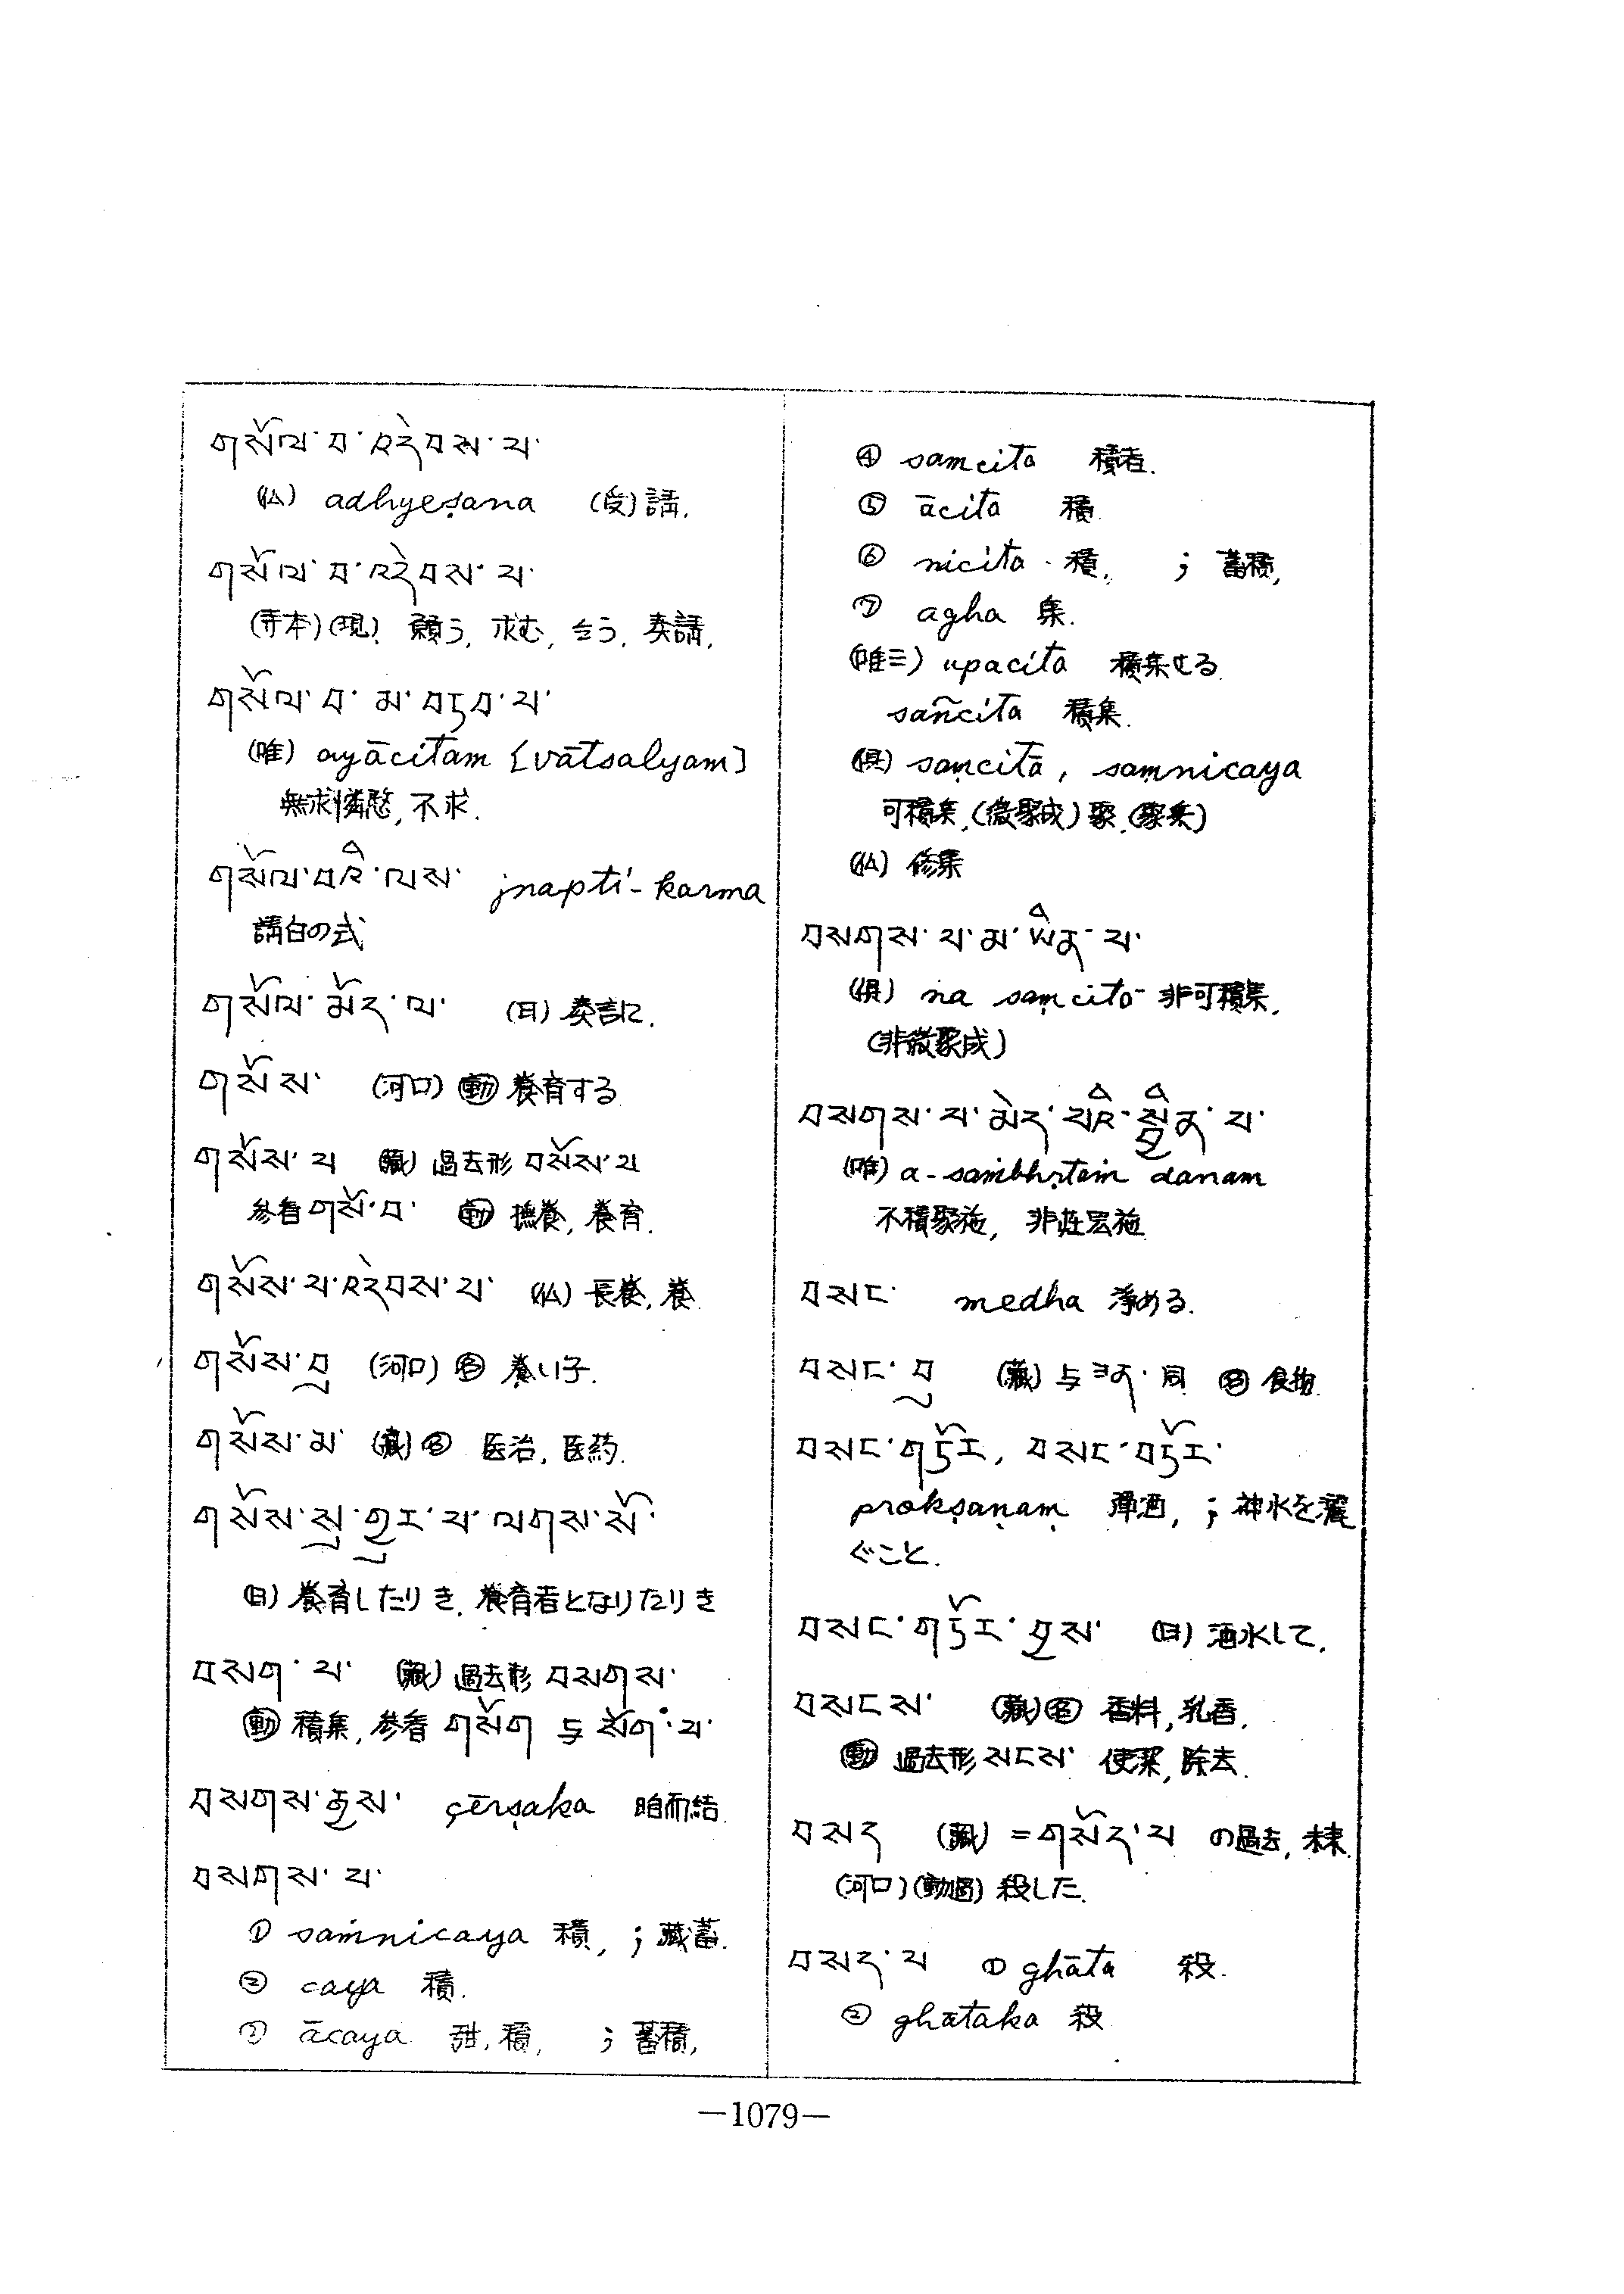 གསོལ་བ་འདེབས་པ་
(仏) adhyeṣana (受)請.
གསོལ་བ་འདེབས་པ་
(寺本)(現) 願う, 求む, 乞う, 奏請,
གསོལ་བ་མ་བཏབ་པ་
(唯) ayācitam [vātsalyam]
無求憐愍, 不求.
གསོལ་བའི་ལས་ jnapti-karma
請白の式
གསོལ་མོད་ལ་ (日) 奏言に.
གསོས་ (河口) 動 養育する
གསོས་པ (藏) 過去形 བསོས་པ
参看 གསོ་བ་ 動 撫養, 養育.
གསོས་པ་འདེབས་པ་ (仏) 長養, 養.
གསོས་བུ (河口) 名 養い子.
གསོས་མ་ (藏) 名 医治, 医药.
གསོས་སུ་གྱུར་པ་ལགས་སོ་
(日) 養育したりき, 養育者となりたりき
བསག་པ་ (藏) 過去形 བསགས་
動 積集, 参看 གསོག 与 སོག་པ་
བསགས་རྒྱས་ çērṣaka 而結.
བསགས་པ་
① saṁnicaya 積, ; 藏蓄.
② caya 積.
③ ācaya 積, ; 蓄積,
④ samcita 積者.
⑤ ācita 積.
⑥ nicita 積, ; 蓄積,
⑦ agha 集.
(唯三) upacita 積集せる
sañcita 積集.
(倶) saṃcita, saṃnicaya
可積集, (微聚成) 聚, (聚集)
(仏) 修集
བསགས་པ་མ་ཡིན་པ་
(倶) na saṃcito 非可積集,
(非微聚成)
བསགས་པ་མེད་པའི་སྦྱིན་པ་
(唯) a-saṁbhṛtaṁ danam
不積聚施, 非
བསང་ medha 淨める.
བསང་བུ (藏) 与 ཟན་ 同 名 食物.
བསང་གཏོར, བསང་བཏོར་
prokṣaṇaṃ 弾洒, ; 神水を灑
ぐこと.
བསང་གཏོར་བྱས་ (日) 洒水して.
བསངས་ (藏) 名 香料, 乳香.
動 過去形 སངས་ 使潔, 除去.
བསད (藏) = གསོད་པ の過去, 未来.
(河口) (動過) 殺した.
བསད་པ ① ghāta 殺.
② ghātaka 殺
—1079—